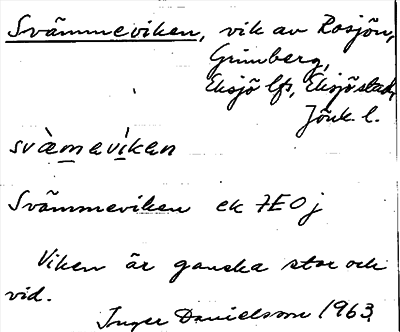 Svämmeviken, vik av Rosjön,
Grimberg,
Eksjö lfs, Eksjö stad,
Jönk. l.
svàmevíken
Svämmeviken ek 7E0j
Viken är ganska stor och
vid.
Inger Danielsson 1963